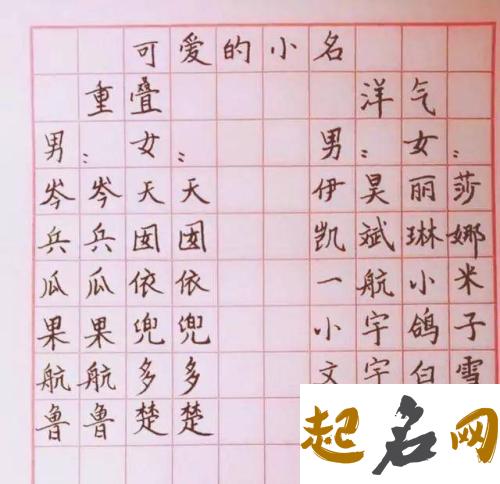 可爱的小名
重叠 洋气
男: 女: 男: 女:
岑岑天天 伊昊丽莎
兵兵囡囡 凯斌琳娜
瓜瓜依依 一航小米
果果兜兜 小宇鸽子
航航多多 文宇白雪
鲁鲁楚楚
起名网